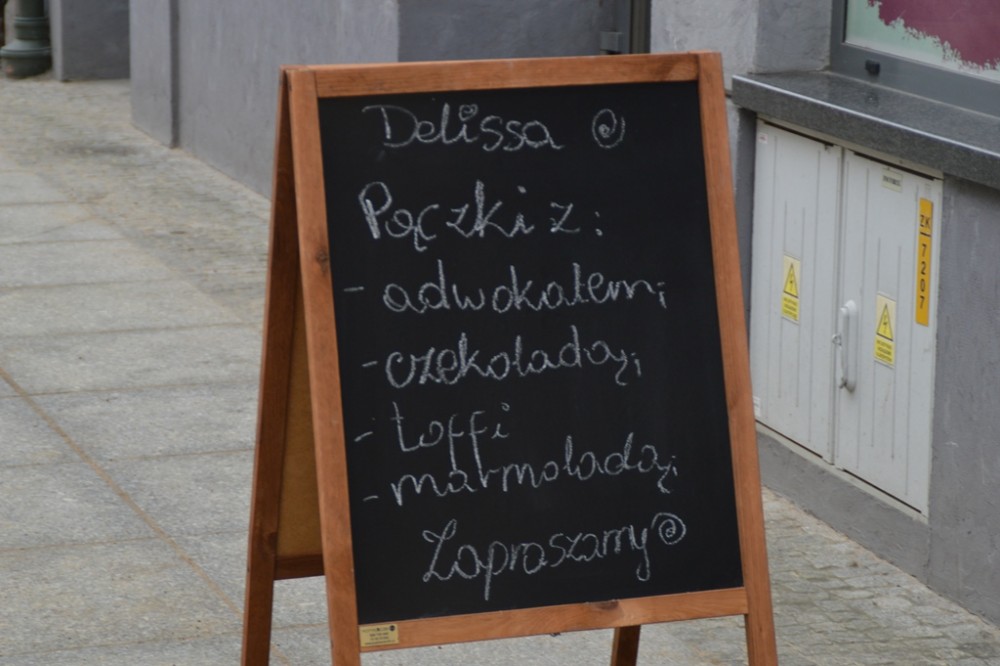 Delissa
Pączki z:
- adwokatem;
- czekoladą;
- toffi
- marmoladą;
Zapraszamy
ZK 7207